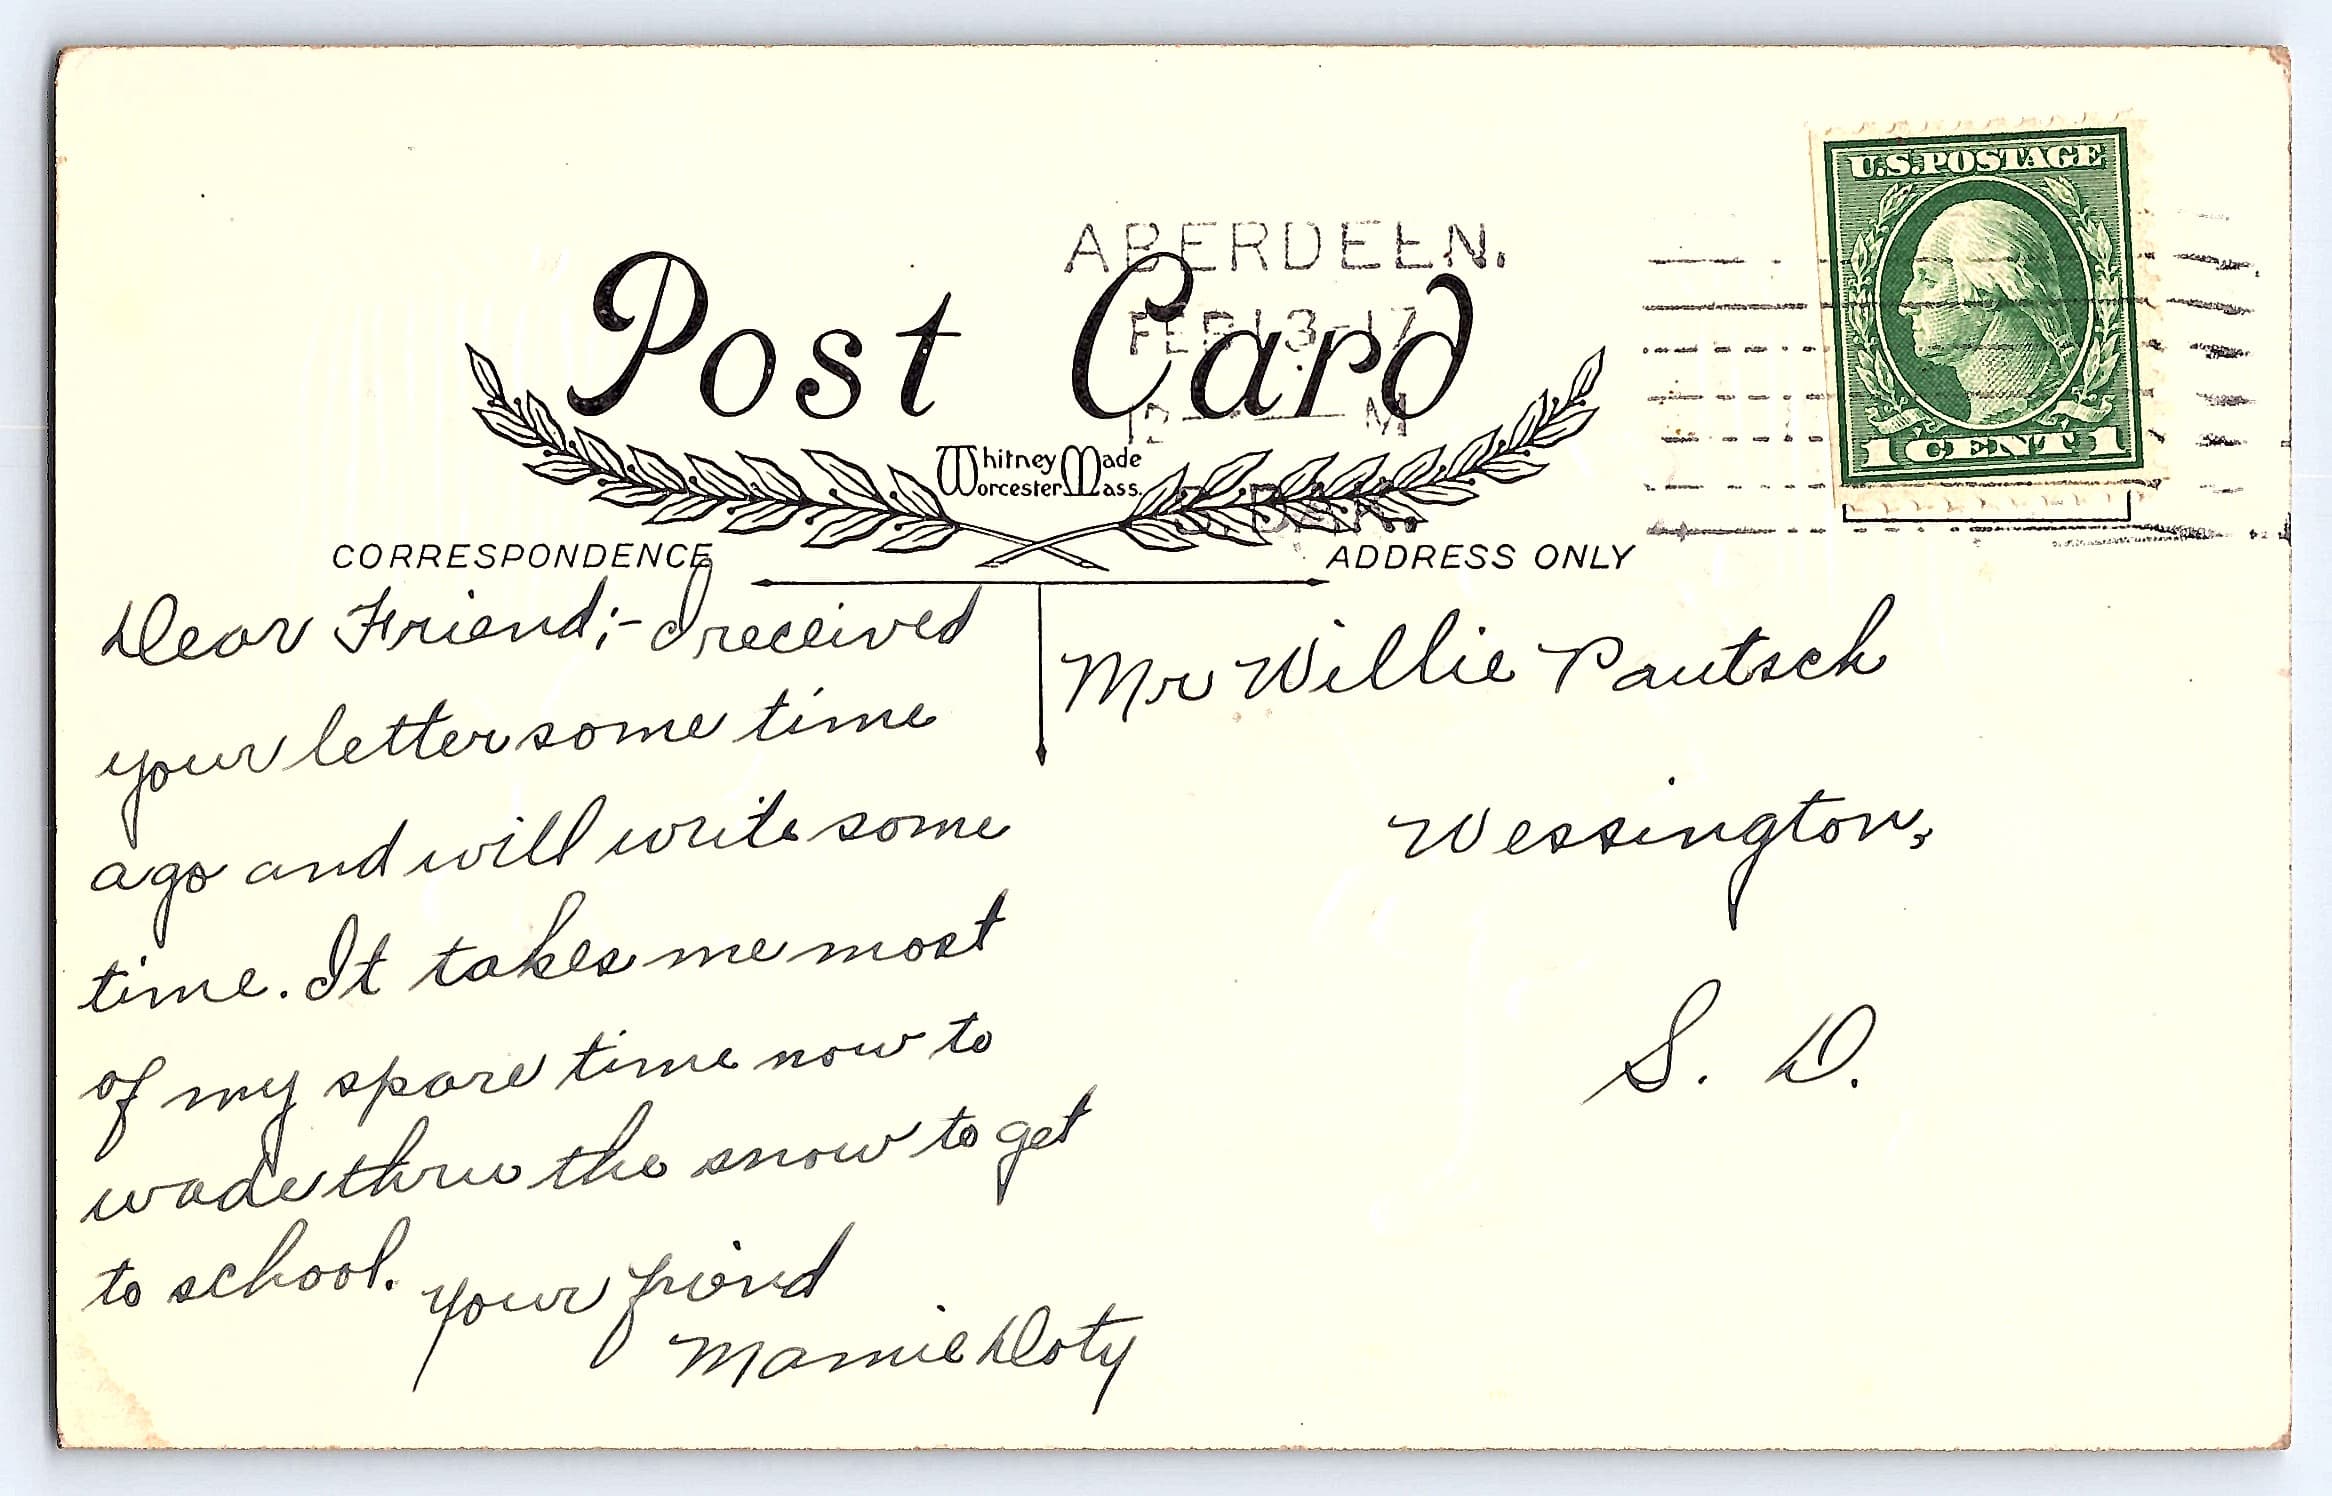 U.S. POSTAGE
1 CENT 1
ABERDEEN.
FEB 13-17
12 M
S. DAK.
Post Card
Whitney Made
Worcester Mass.
CORRESPONDENCE
ADDRESS ONLY
Dear Friend;- I received
your letter some time
ago and will write some
time. It takes me most
of my spare time now to
wade thru the snow to get
to school. Your friend
Mamie Doty
Mr Willie Pautsch
Wessington,
S. D.